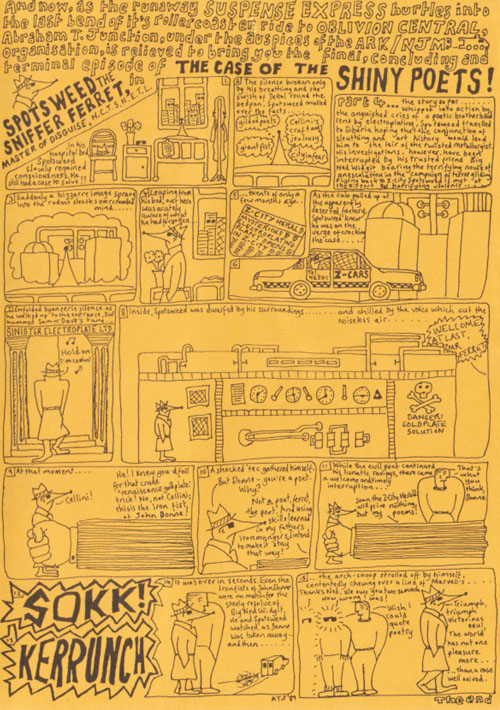 And now, as the runaway SUSPENSE EXPRESS hurtles into
the last bend of it's rollercoaster ride to OBLIVION CENTRAL,
Abraham T. Junction, under the auspices of the ARK/NJM
organisation, is relieved to bring you the final, concluding and
terminal episode of THE CASE OF THE
SHINY POETS!
SPOTSWEED THE
SNIFFER FERRET, in
MASTER OF DISGUISE
In his
hospital bed
Spotsweed
slowly regained
consciousness. He
still had a case to solve
The silence broken only
by his breathing and the
swish of
bedpan, Spotsweed mulled
over the facts
gold
poets
Cellini's
craft and
jealousy
giant fist
the story so far
Whipped into action by
the anguished cries of a poetic brotherhood
bent by electroplating, Spotsweed travelled
to Siberia hoping that the conjunction of
sleuthing and art history would lead
him to the lair of the twisted metallurgist.
His investigations, however, have been
interrupted by his trusted friend Big
Ned Widgit bearing the terrifying news of
an escalation in the campaign of
3 Suddenly a bizarre image sprang
into the rodent sleuth's
mind
4 Leaping from
his bed, our hero
was acutely
aware of what
he had forgotten
5 ...events of only a
few months ago.
Z-CITY HERALD
MYSTERIOUS
ELECTROPLATING
EQUIPMENT
6
As the car pulled up at
the apparently
deserted factory,
Spotsweed knew
he was on the
verge of cracking
the case....
Z-CARS
7 Enfolded by an eerie silence as
he walked up to the entrance, Sw
hummed
SINISTER ELECTROPLATE LTD
Hold on
I'm comin'
8 Inside, Spotsweed was dwarfed by his surroundings........
...and chilled by the voice which cut the
noiseless air....
WELCOME
AT LAST,
FERRET!
DANGER!
GOLDPLATE
SOLUTION
9 At that moment....
Cellini!
Ha! I knew you'd fall
for that crude
'renaissance goldplate'
trick! No, not Cellini;
this is the iron fist,
of John Donne!
10 A shocked tec gathered himself
But Donne - you're a poet.
Why?
Not a poet, ferret,
the poet! And using
skills learned
in my father's
ironmongers, I intend
to make it stay
that way!
11 While the evil poet continued
his lunatic ravings, there came
a welcome and timely
interruption....
from the 20th
will prize nothing
but my poems!
That's
what
you
think,
Donne.
12
SOKK!
13
KERRUNCH
14 It was over in seconds. Even the
iron fists of John Donne
were no match for the
steely resolve of
Big Ned Widgit.
He and Spotsweed
watched as Donne
was taken away
and then....
ATJ '89
15 ...the arch-snoop strolled off by himself,
contentedly chewing over a line of Marvell's....
Thanks Ned. We owe you two
Wish I
could
quote
poetry
Triumph,
triumph
victorious
soul,
The world
has not one
pleasure
more...
...than a case
well solved.
The end